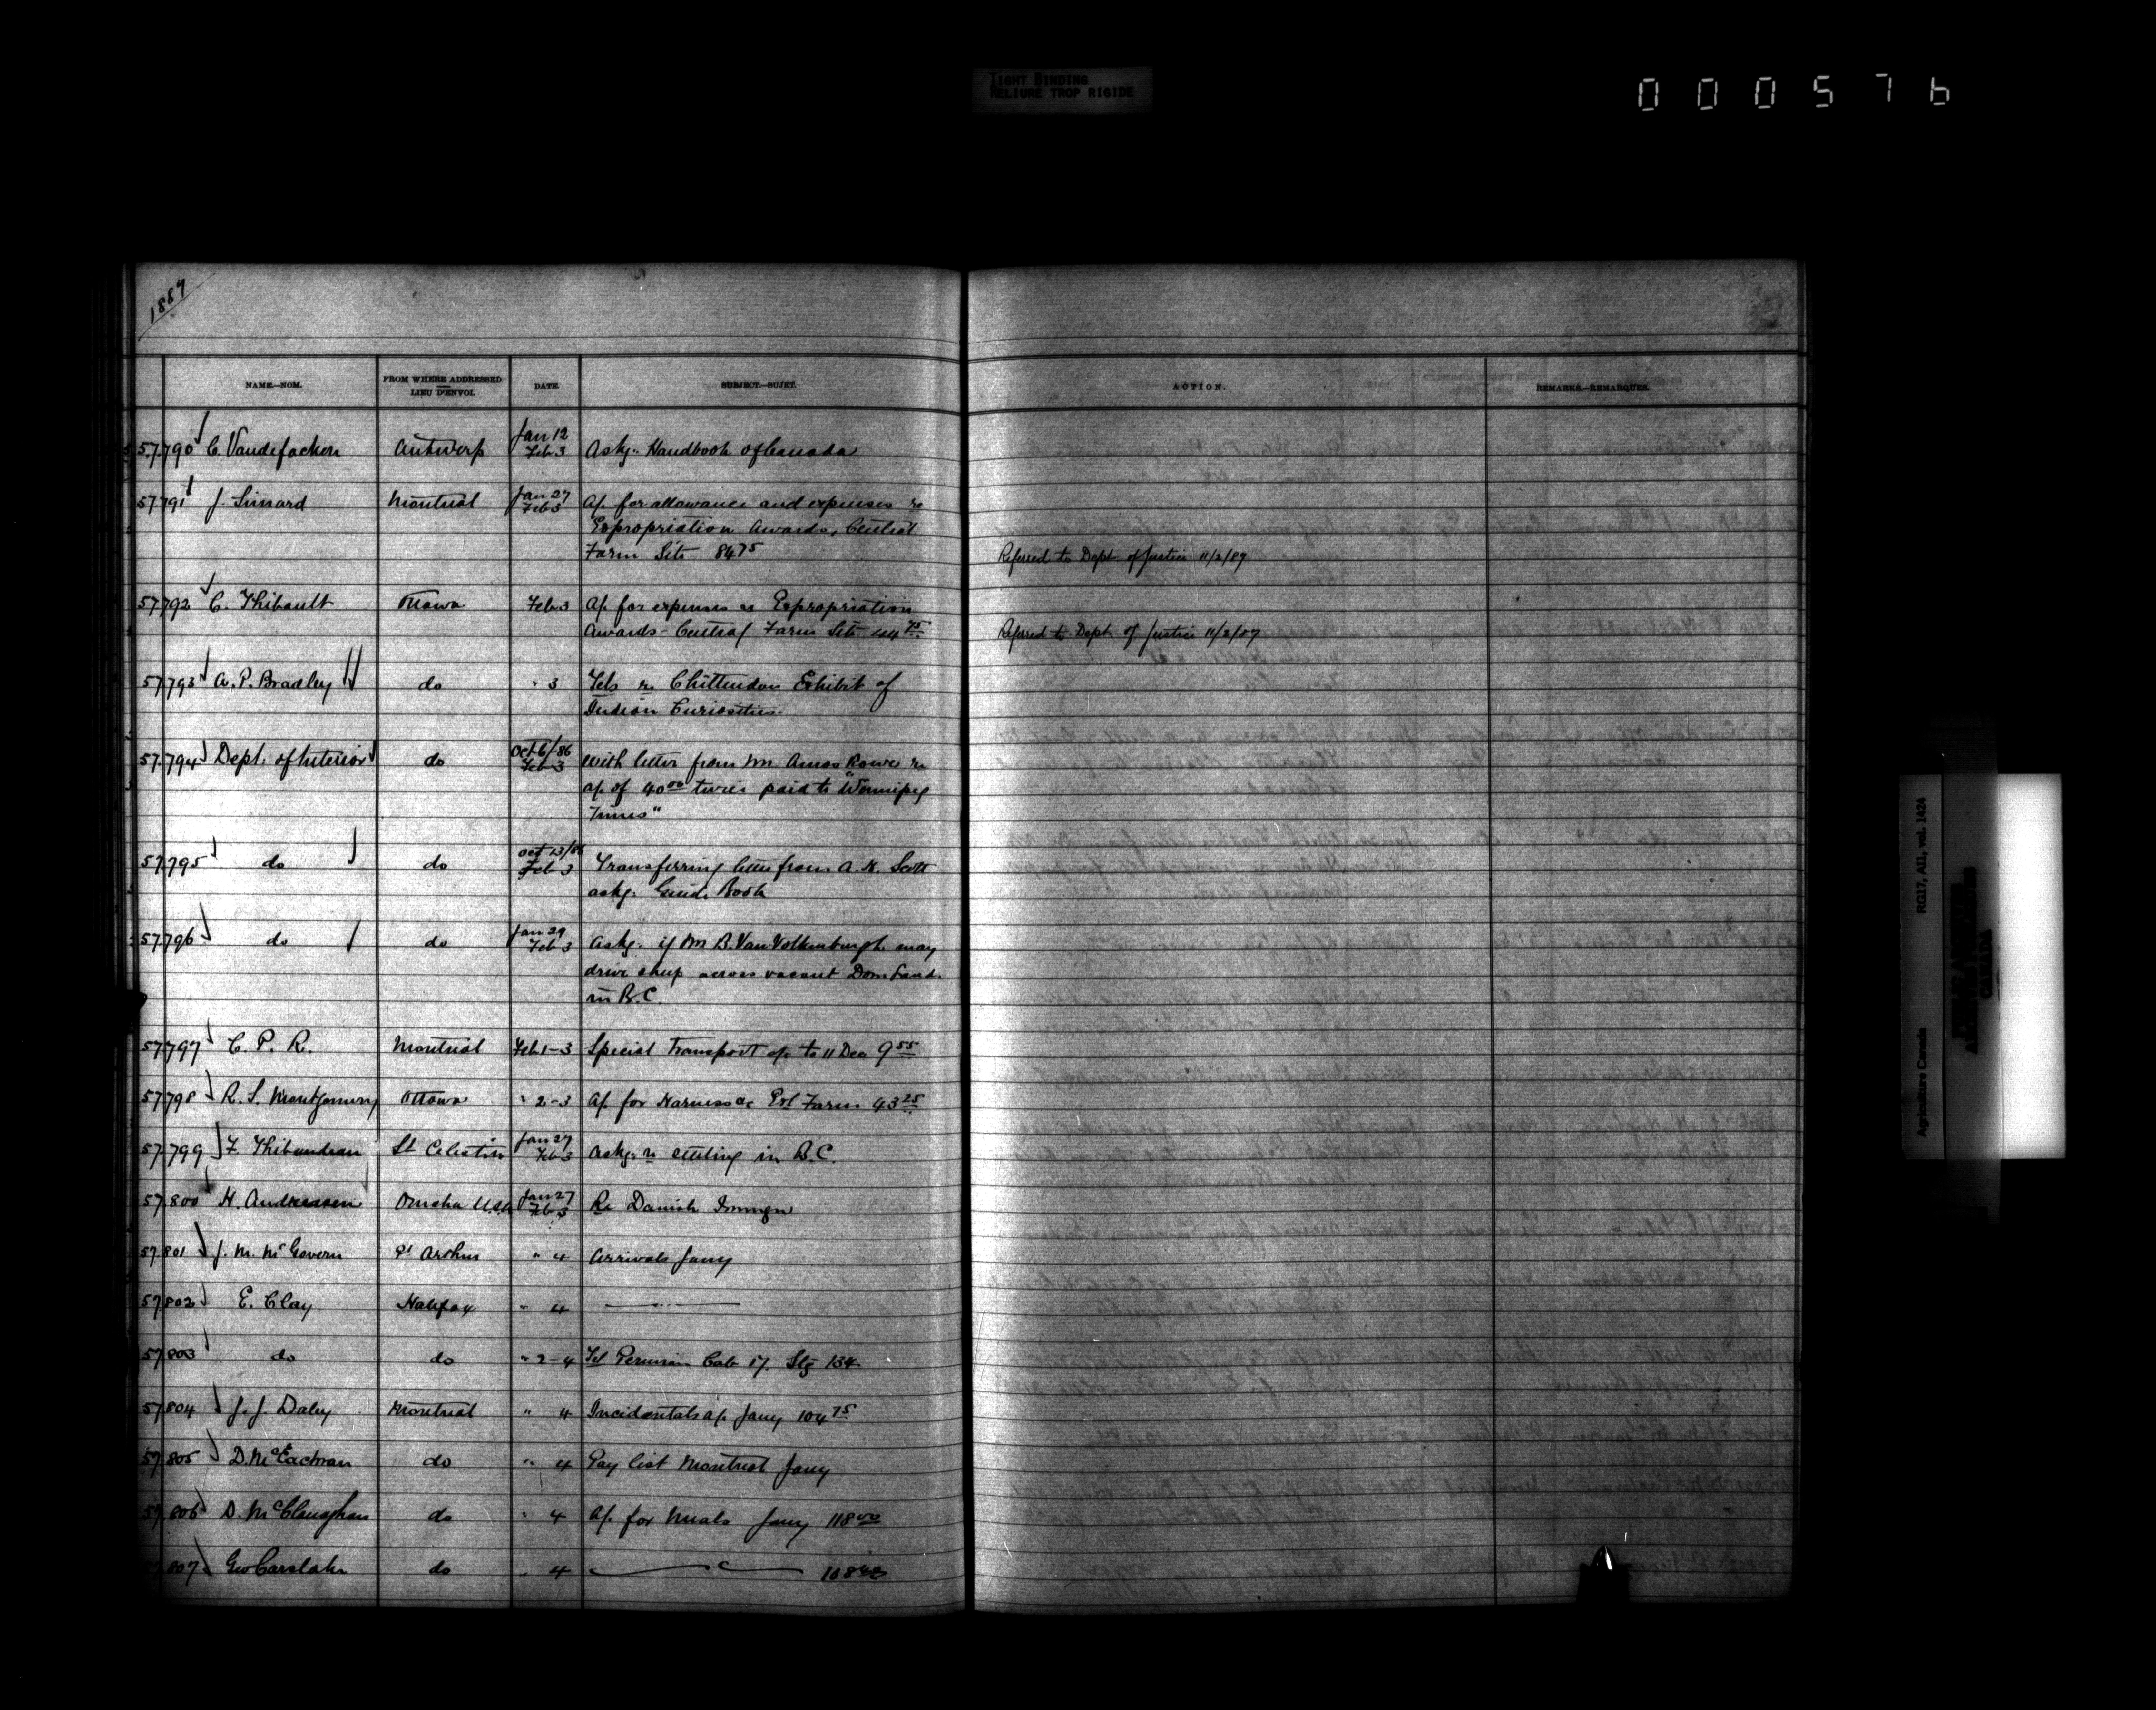 TIGHT BINDING
RELIURE TROP RIGIDE
000576
1887
NAME.—NOM. FROM WHERE ADDRESSED LIEU D'ENVOI. DATE. SUBJECT.—SUJET. ACTION. REMARKS.—REMARQUES.
57790 C. Vandefacken Antwerp Jan 12 Feb 3 Askg. Handbook of Canada
57791 J. Simard Montreal Jan 27 Feb 3 a/c for allowance and expenses re
Expropriation Awards, Central
Farm Site 84 75 Referred to Dept of Justice 11/2/87
57792 C. Thibault Ottawa Feb 3 a/c for expenses re Expropriation
Awards - Central Farm Site 44 75 Referred to Dept. of Justice 11/2/87
57793 A. P. Bradley do " 3 Tels re Chittenden Exhibit of
Indian Curiosities
57794 Dept. of Interior do Oct 6/-86 Feb 3 With letter from Mr Amos Rowe re
a/c of 40 00 twice paid to "Winnipeg
Times"
57795 do do Oct 13/86 Feb 3 Transferring letter from A. H. Scott
askg. Guide Book
57796 do do Jan 29 Feb 3 Askg. if Mr B. Van Volkenburgh may
drive sheep across vacant Dom Land
in B.C.
57797 C. P. R. Montreal Feb 1-3 Special Transport a/c to 11 Dec 9 55
57798 R. S. Montgomery Ottawa " 2-3 a/c for Harness &c Exl Farm 43 25
57799 F. Thibaudeau St Celestin Jan 27 Feb 3 Askg. re settling in B.C.
57800 H. Andreasen Omaha U.S.A. Jan 27 Feb 3 Re Danish Immgn
57801 J. M. McGovern Pt Arthur " 4 Arrivals Jany
57802 E. Clay Halifax " 4 —
57803 do do " 2-4 Tel Peruvian Cab 17. Stg 134
57804 J. J. Daley Montreal " 4 Incidentals a/c Jany 104 75
57805 D. McEachran do " 4 Pay list Montreal Jany
57806 D. McClanaghan do " 4 a/c for Meals Jany 118 00
807 Geo Carslake do " 4 —
Agriculture Canada RG17, AII, vol. 1424
CANADA